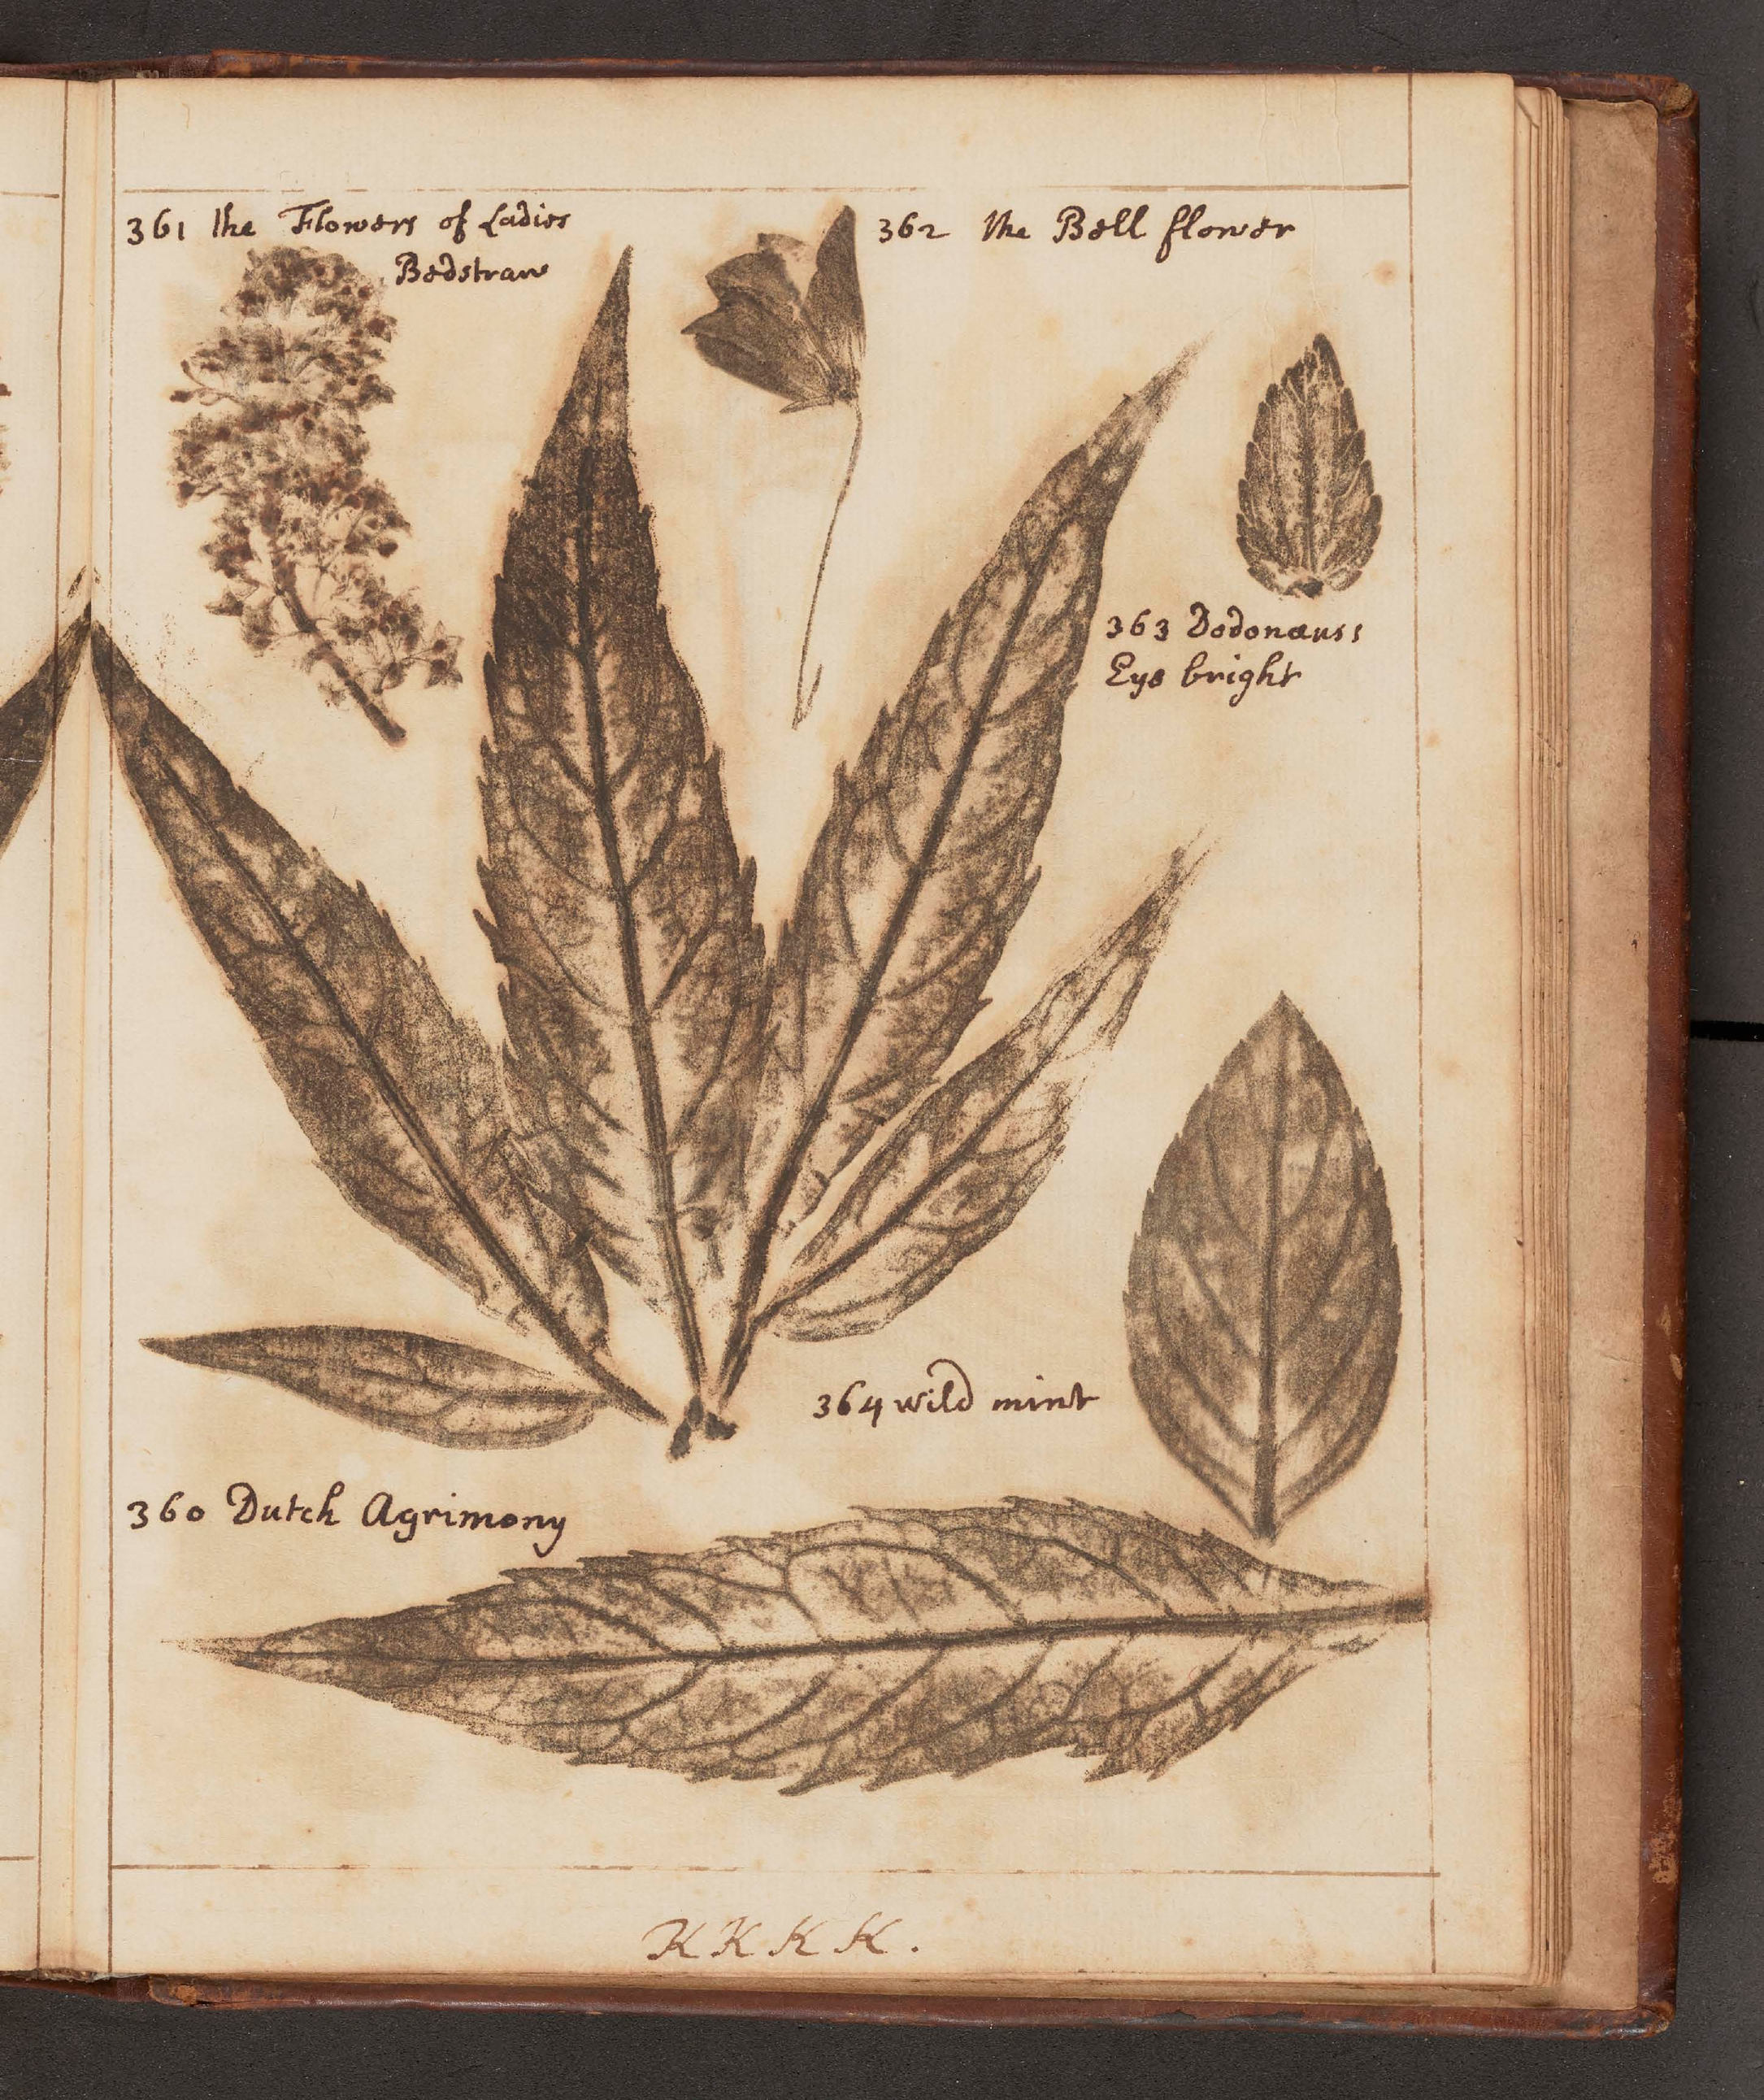 361 the Flowers of Ladies
Bedstraw
362 the Bell flower
363 Dodonæuss
Eye bright
364 wild mint
360 Dutch Agrimony
KKKK.